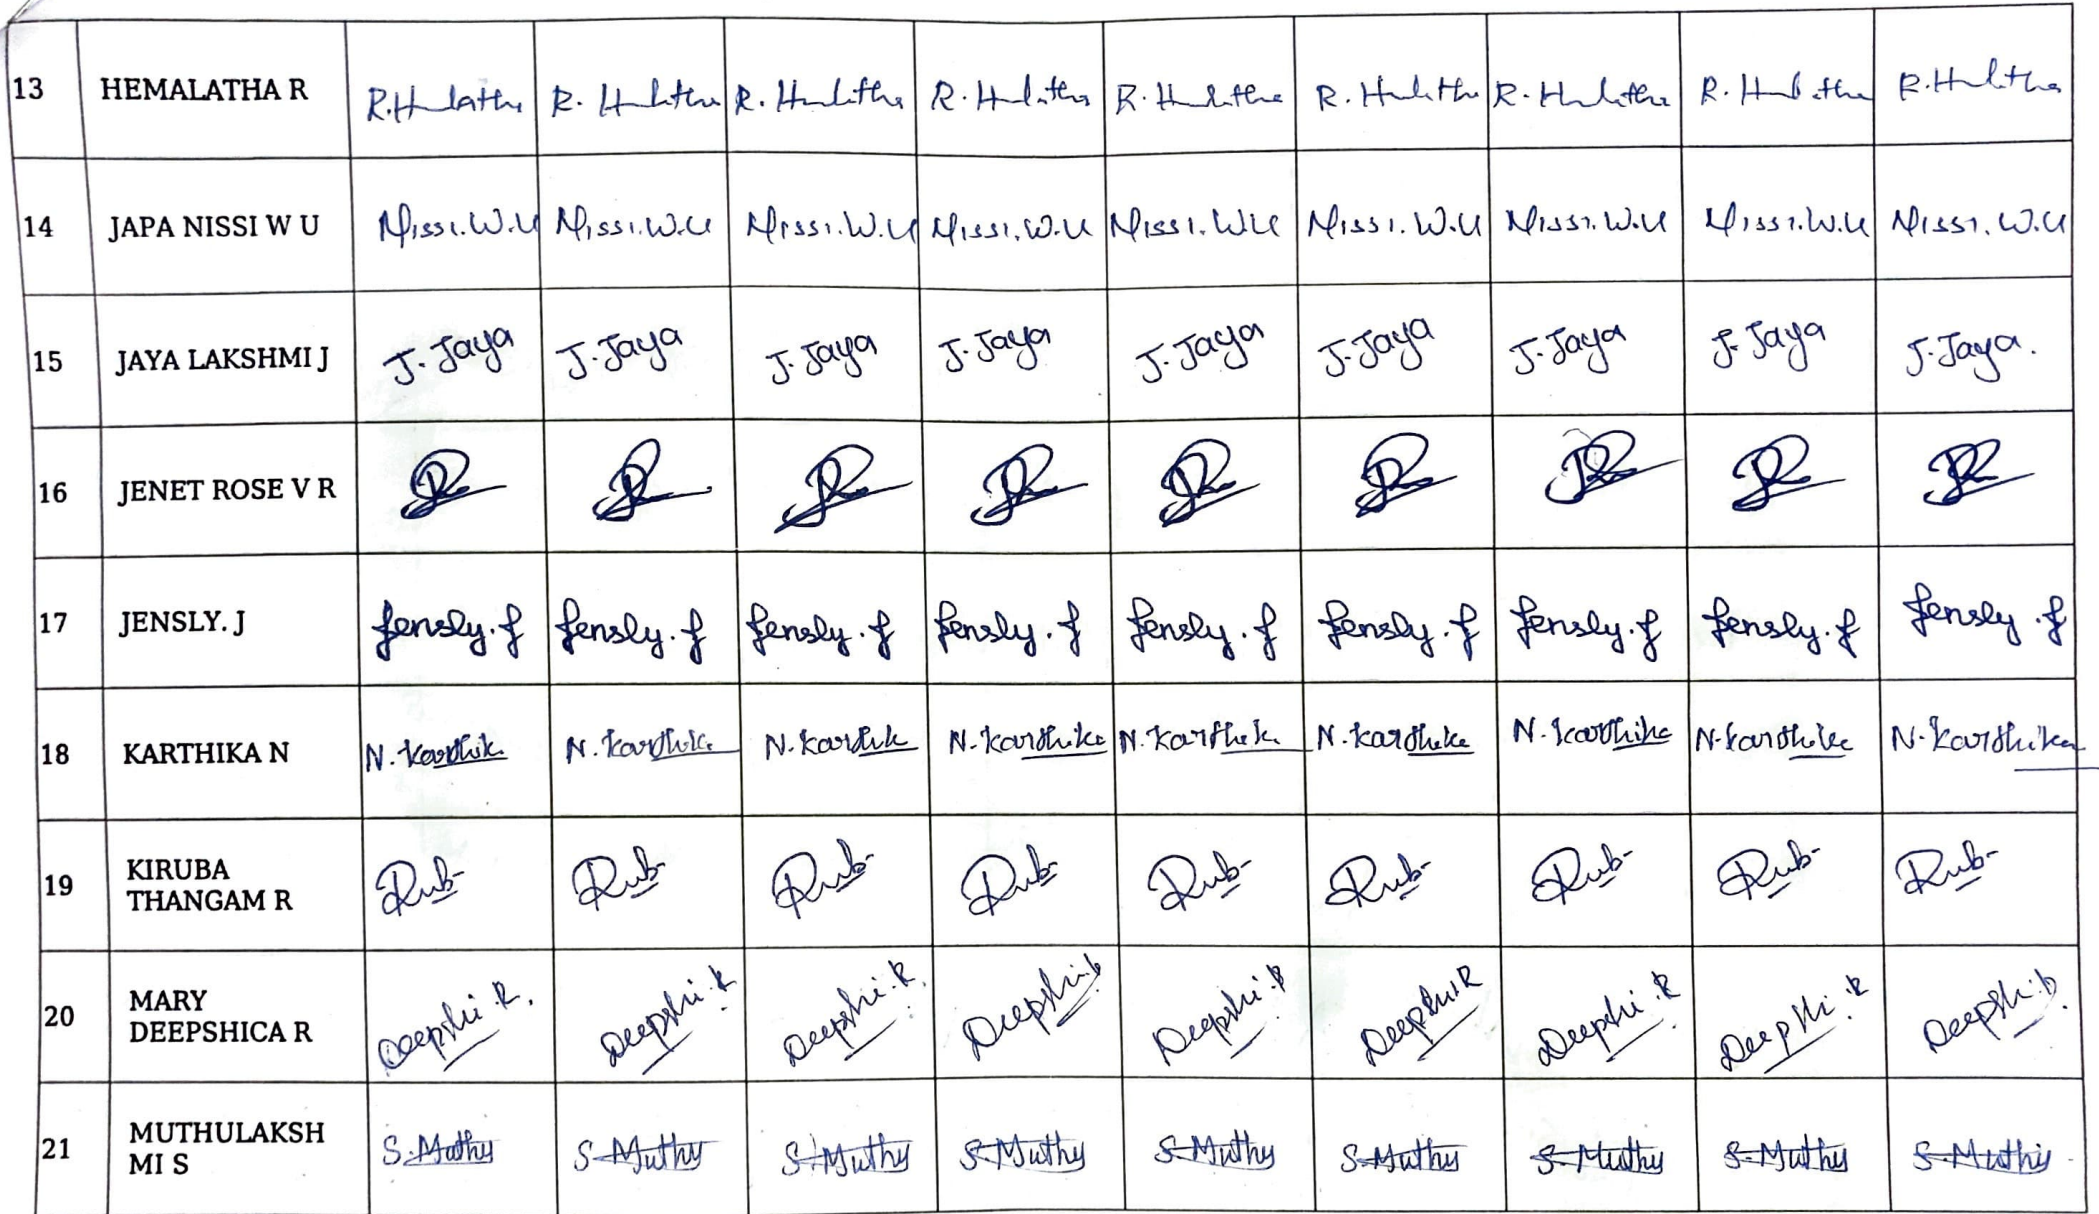 13 HEMALATHA R R.Hlatha R. Hlitha R. Hlitha R. Hlitha R. Hlitha R. Hlitha R. Hlitha R. Hlitha R. Hlitha
14 JAPA NISSI W U Nissi.W.U Nissi.W.U Nissi.W.U Nissi.W.U Nissi.W.U Nissi.W.U Nissi.W.U Nissi.W.U Nissi.W.U
15 JAYA LAKSHMI J J.Jaya J.Jaya J.Jaya J.Jaya J.Jaya J.Jaya J.Jaya J.Jaya J.Jaya.
16 JENET ROSE V R
17 JENSLY. J Jensly.J Jensly.J Jensly.J Jensly.J Jensly.J Jensly.J Jensly.J Jensly.J Jensly.J
18 KARTHIKA N N.Karthik N.Karthika N.Karthik N.Karthika N.Karthika N.Karthika N.Karthika N.Karthika N.Karthika
19 KIRUBA
THANGAM R Rub Rub Rub Rub Rub Rub Rub Rub Rub
20 MARY
DEEPSHICA R Deepshi.R. Deepshi.R Deepshi.R. Deepshi.R Deepshi.R Deepshi.R Deepshi.R Deepshi.R Deepshi.R
21 MUTHULAKSH
MI S S.Muthu S.Muthu S.Muthu S.Muthu S.Muthu S.Muthu S.Muthu S.Muthu S.Muthu